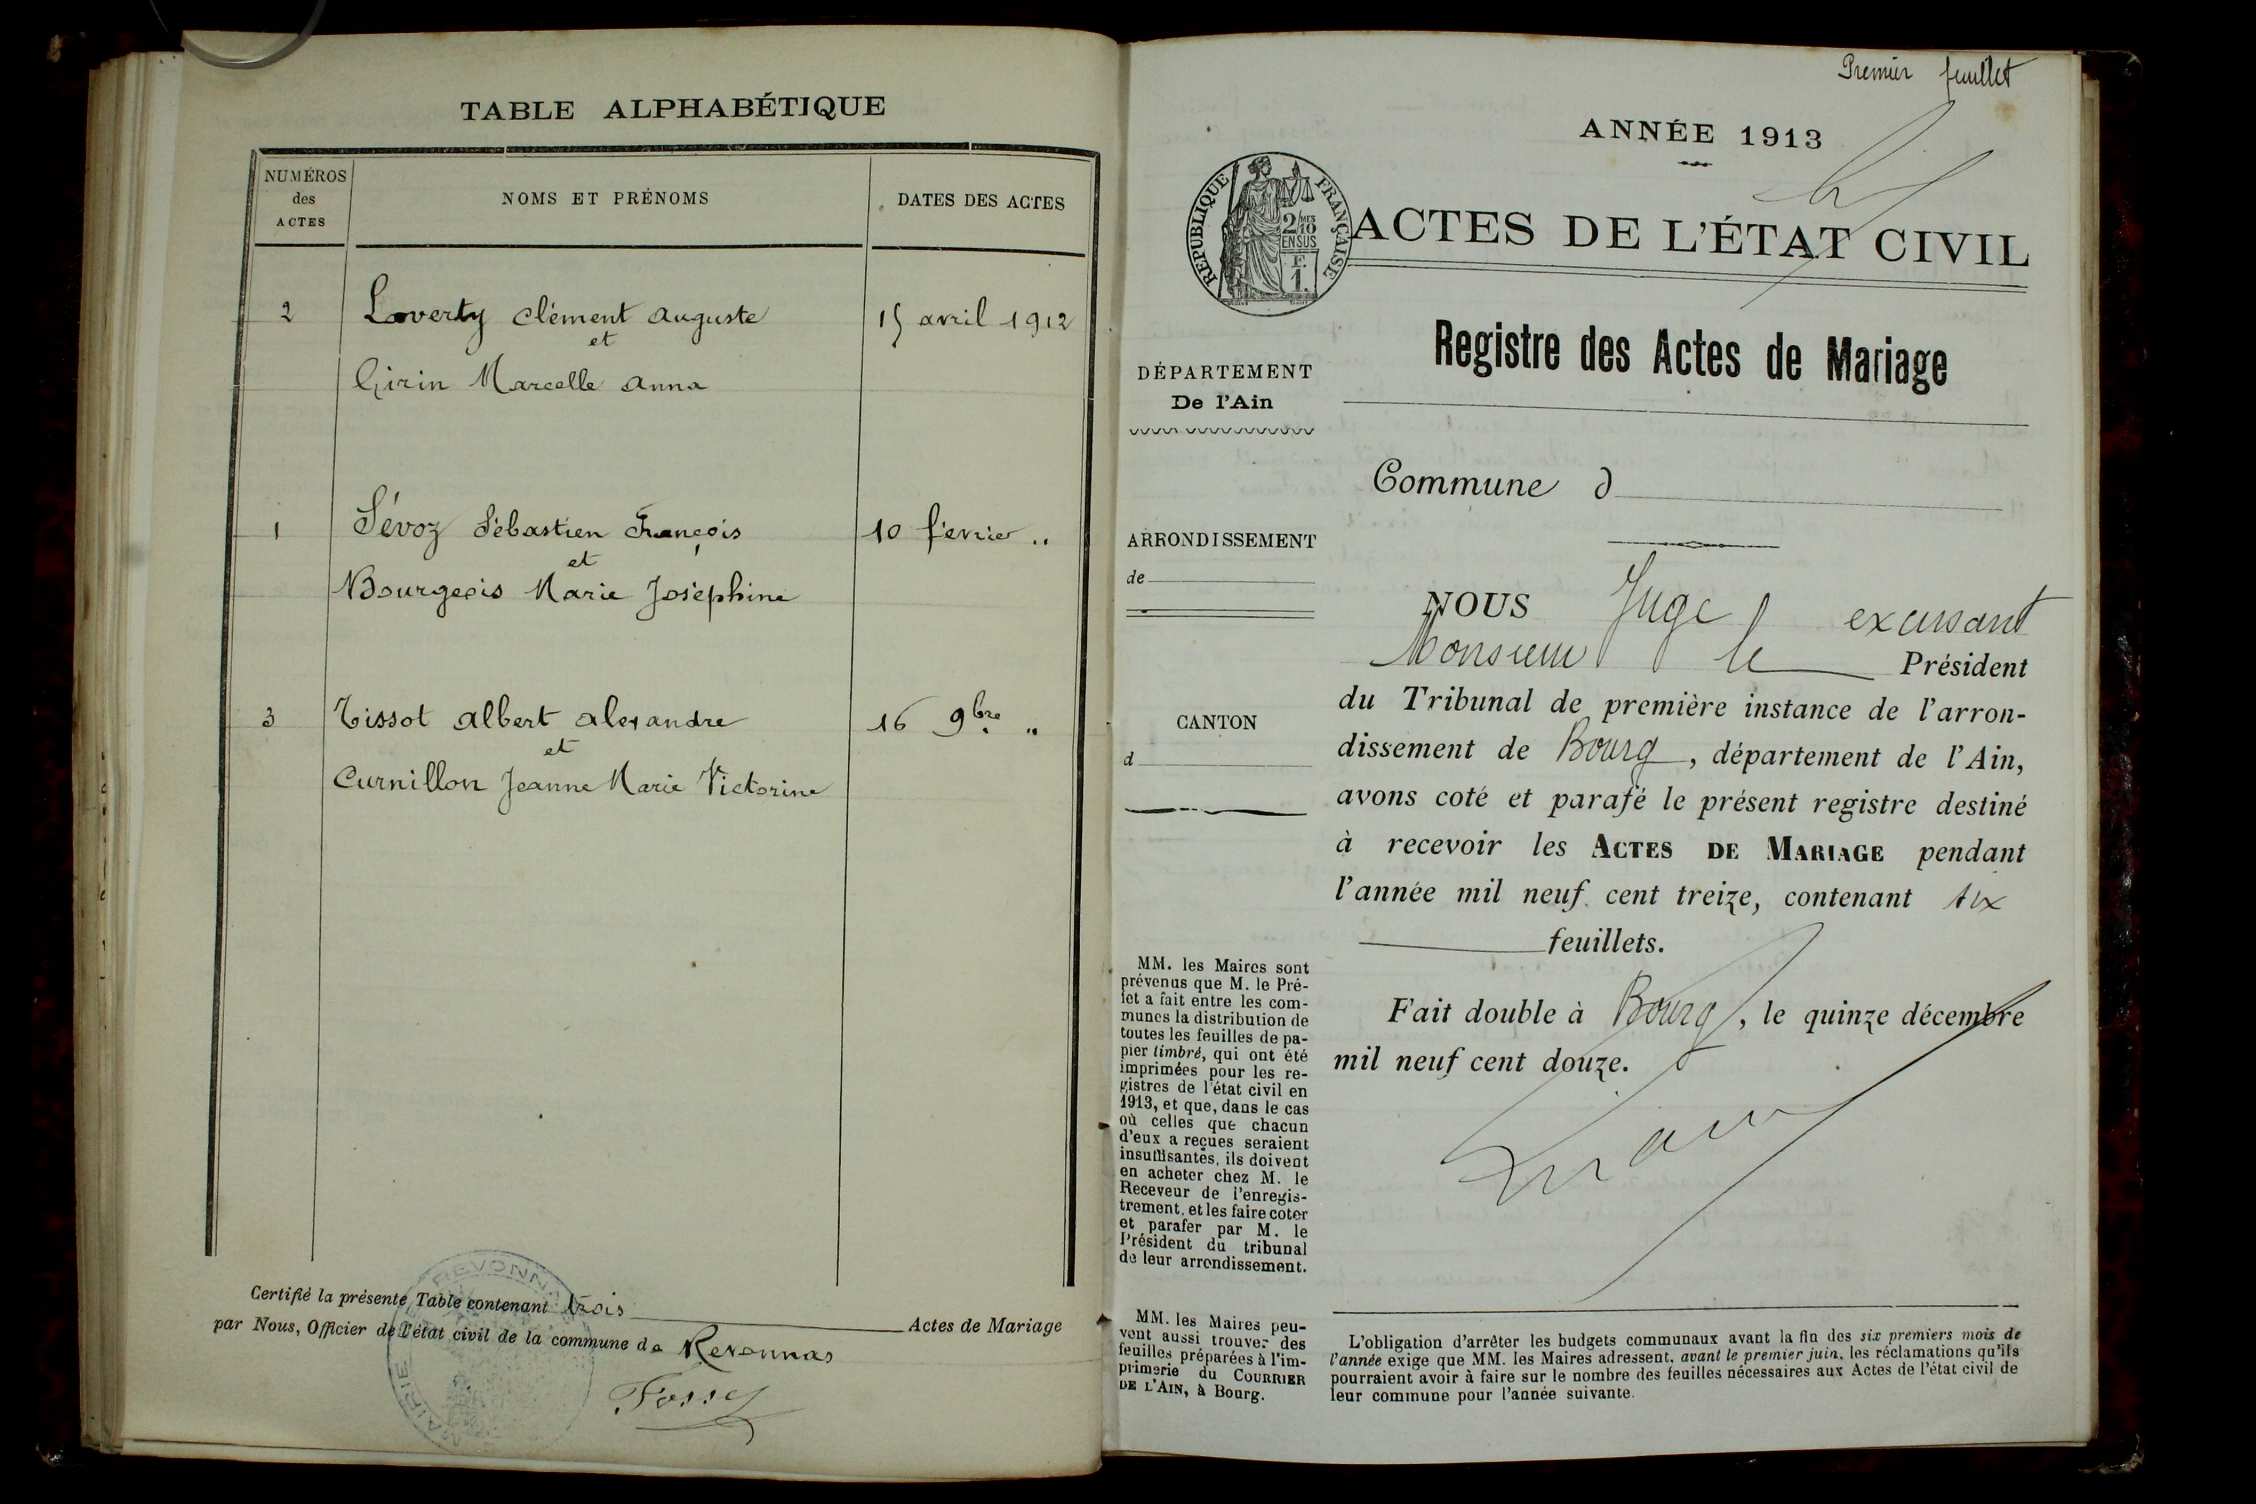 TABLE ALPHABÉTIQUE
NUMÉROS
des
ACTES
NOMS ET PRÉNOMS
DATES DES ACTES
2 Loverty Clément Auguste 15 avril 1912
et
Girin Marcelle Anna
1 Sévoz Sébastien François 10 février "
et
Bourgeois Marie Joséphine
3 Tissot Albert Alexandre 16 9bre "
et
Curnillon Jeanne Marie Victorine
Certifié la présente Table contenant trois Actes de Mariage
par Nous, Officier de l'état civil de la commune de Revonnas
MAIRIE REVONN
Premier feuillet
ANNÉE 1913
RÉPUBLIQUE FRANÇAISE
2/10 MES
EN SUS
F.
1.
ACTES DE L'ÉTAT CIVIL
Registre des Actes de Mariage
DÉPARTEMENT
De l'Ain
Commune d
ARRONDISSEMENT
de
CANTON
d
NOUS Juge excusant
Monsieur le Président
du Tribunal de première instance de l'arron-
dissement de Bourg, département de l'Ain,
avons coté et parafé le présent registre destiné
à recevoir les ACTES DE MARIAGE pendant
l'année mil neuf cent treize, contenant six
feuillets.
Fait double à Bourg, le quinze décembre
mil neuf cent douze.
MM. les Maires sont
prévenus que M. le Pré-
fet a fait entre les com-
munes la distribution de
toutes les feuilles de pa-
pier timbré, qui ont été
imprimées pour les re-
gistres de l'état civil en
1913, et que, dans le cas
où celles que chacun
d'eux a reçues seraient
insuffisantes, ils doivent
en acheter chez M. le
Receveur de l'enregis-
trement, et les faire coter
et parafer par M. le
Président du tribunal
de leur arrondissement.
MM. les Maires peu-
vent aussi trouver des
feuilles préparées à l'im-
primerie du COURRIER
DE L'AIN, à Bourg.
L'obligation d'arrêter les budgets communaux avant la fin des six premiers mois de
l'année exige que MM. les Maires adressent, avant le premier juin, les réclamations qu'ils
pourraient avoir à faire sur le nombre des feuilles nécessaires aux Actes de l'état civil de
leur commune pour l'année suivante.